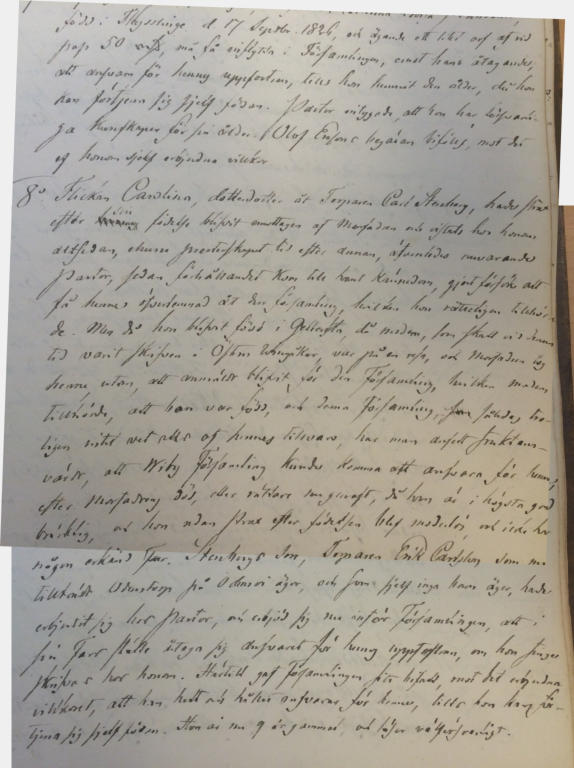 född i Flysslinge d 17 Septbr. 1826, och ägande ett litet arf af vid
pass 50 må få inflytta i Församlingen, emot hans åtagande,
att ansvara för henny uppfostran, tills hon hunnit den ålder, då hon
kan förtjena sig sjelf födan. Pastor intygade, att hon har
ga kunskaper för sin ålder. Olof begäran bifölls, mot det
af honom sjelf erbjudna villkor
8o Flickan Carolina, dotterdotter åt Torparen Carl Stenberg, hade strax
efter sin födelse blifvit emottagen af Morfadren och vistats hos honom
alltsedan, ehuru efter annan, nuvarande
Pastor, sedan förhållandet kom till hans kännedom, gjort försök att
få henne åt den församling, hvilken hon rätteligen tillhör-
de. Men då hon blifvit född i då modern, som skall vid denna
tid varit skrifven i Östra Wingåker, var på en resa, och Morfadren tog
henne utan, att anmäldt blifvit, för den Församling, hvilken modern
tillhörde, att hon var född, och denna Församling, således tro-
ligen intet vet alls af hennes tillvaro, har man ansett fruktans-
värdt, att Wiby Församling kunde komma att ansvara för henne,
efter Morfadrens död, eller rättare nu genast, då han är i högsta grad
bräcklig, och hon redan strax efter födelsen blef moderlös, och icke har
någon erkänd Far. Stenbergs Son, Torparen Erik Carlsson som nu
tillträdt på ägor, och som sjelf inga barn äger, hade
erbjudit sig hos Pastor, och erbjöd sig nu inför Församlingen, att i
sin Fars ställe åtaga sig ansvaret för henny uppfostran, om hon finge
skrifvas hos honom. Härtill gaf Församlingen sitt bifall, mot det erbjudna
villkoret, att han helt och hållet ansvarar för henne, tills hon kan för-
tjena sig sjelf födan. Hon är nu 9 år gammal, och läser